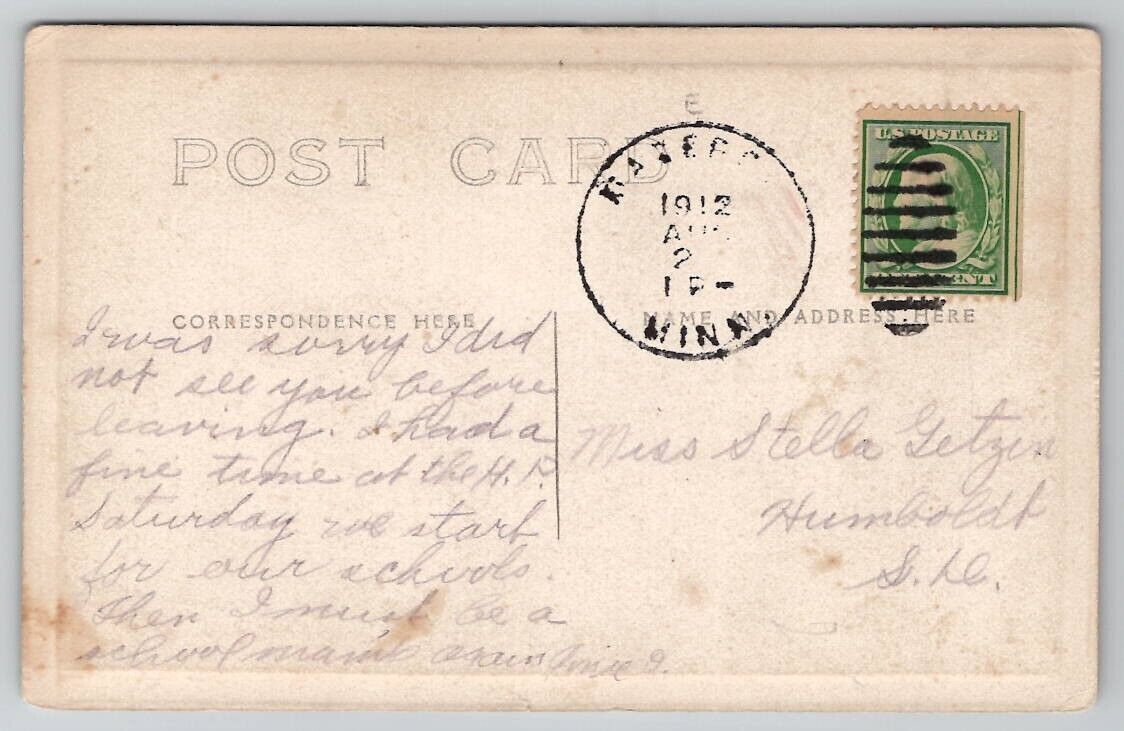 POST CARD
U.S. POSTAGE
1912
AUG
2
1 P-
MINN.
CORRESPONDENCE HERE
NAME AND ADDRESS HERE
I was sorry I did
not see you before
leaving. I had a
fine time at the H. P.
Saturday we start
for our schools.
Then I must be a
school mam again
Miss Stella Getzin
Humboldt
S. D.